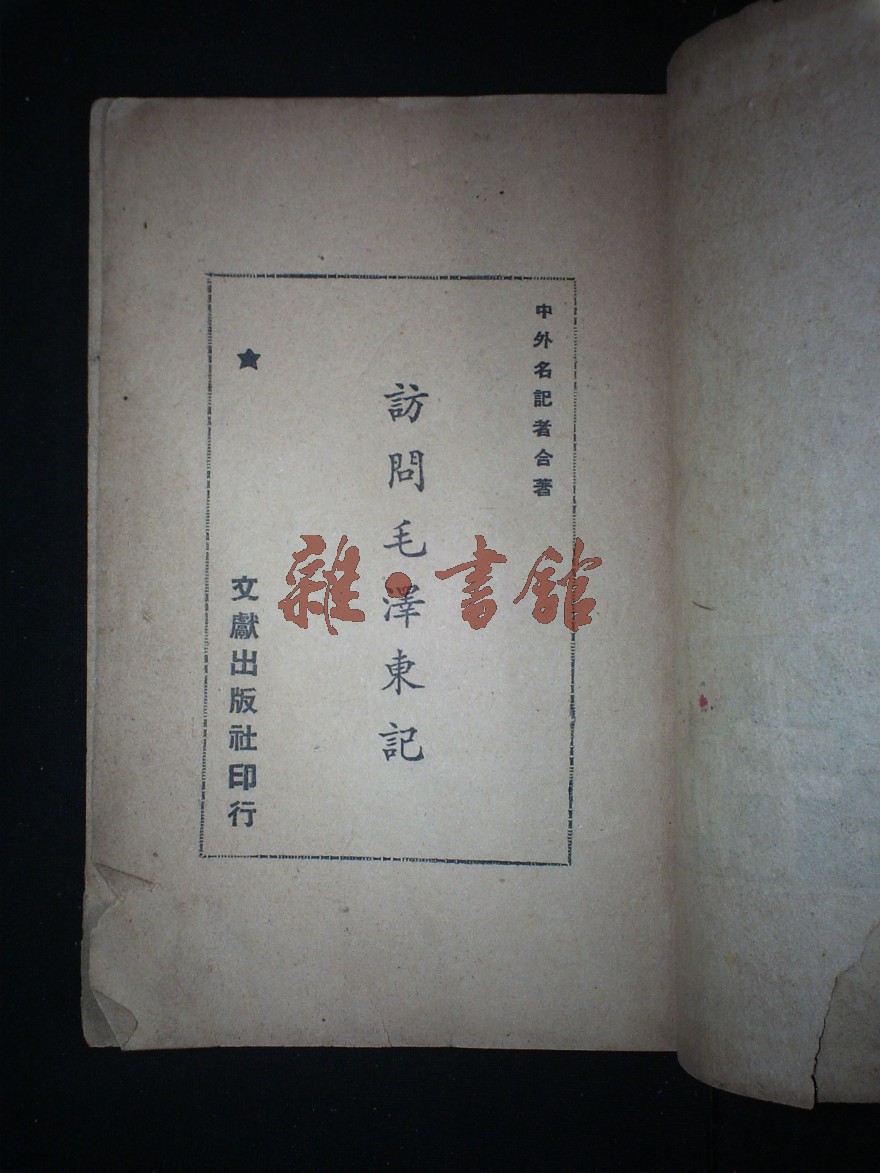 中外名記者合著
訪問毛澤東記
★
文獻出版社印行
雜·書館